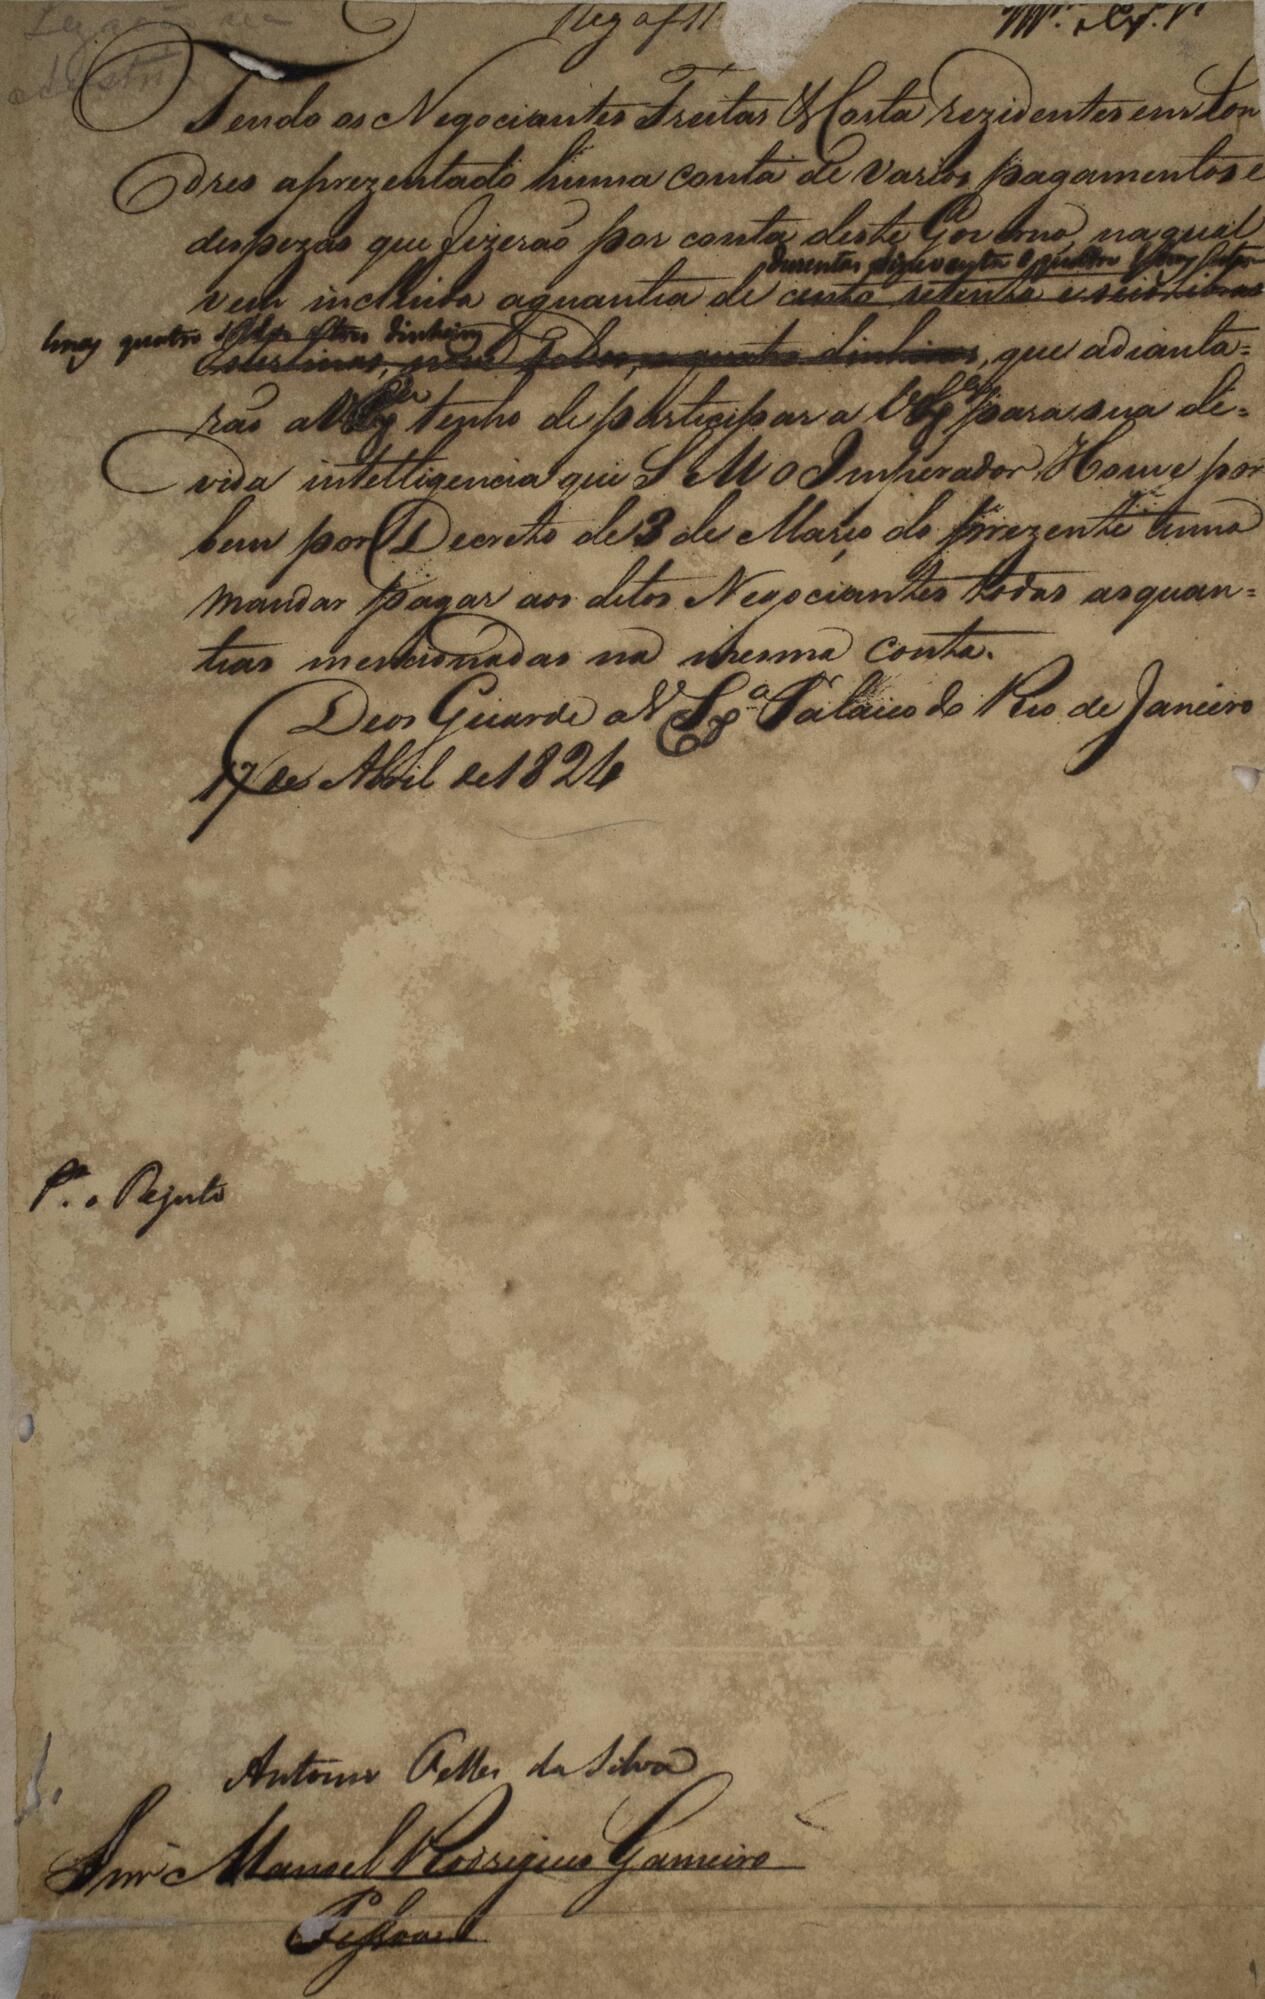 Tendo os Negociantes Freitas & Costa rezidentes em Lon
dres aprezentado huma conta de varios pagamentos e
despezas que fizerão por conta deste Governo, na qual
duzentas cincoenta e quatro
vem incluida a quantia de cento setenta e seis libras
quatro soldos e tres dinheiros
esterlinas, soldos, e quatro dinheiros, que adianta=
rão a V Sa tenho de participar a V Sa para sua de=
vida intelligencia que S M O Imperador Houve por
bem por Decreto de 3 de Março do prezente anno
mandar pagar aos ditos Negociantes todas as quan=
tias mencionadas na mesma conta.
Deos Guarde a V Sa Palacio do Rio de Janeiro
17 de Abril de 1824
Antonio Telles da Silva
Snr Manoel Rodrigues Gameiro
Pessoa